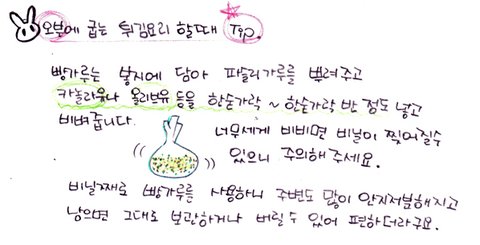 오븐에 굽는 튀김요리 할때 Tip.
빵가루는 봉지에 담아 파슬리가루를 뿌려주고
카놀라유나 올리브유 등을 한숟가락 ~ 한숟가락 반 정도 넣고
비벼줍니다.
너무세게 비비면 비닐이 찢어질수
있으니 주의해 주세요.
비닐째로 빵가루를 사용하니 주변도 많이 안지저분해지고
남으면 그대로 보관하거나 버릴수 있어 편하더라구요.